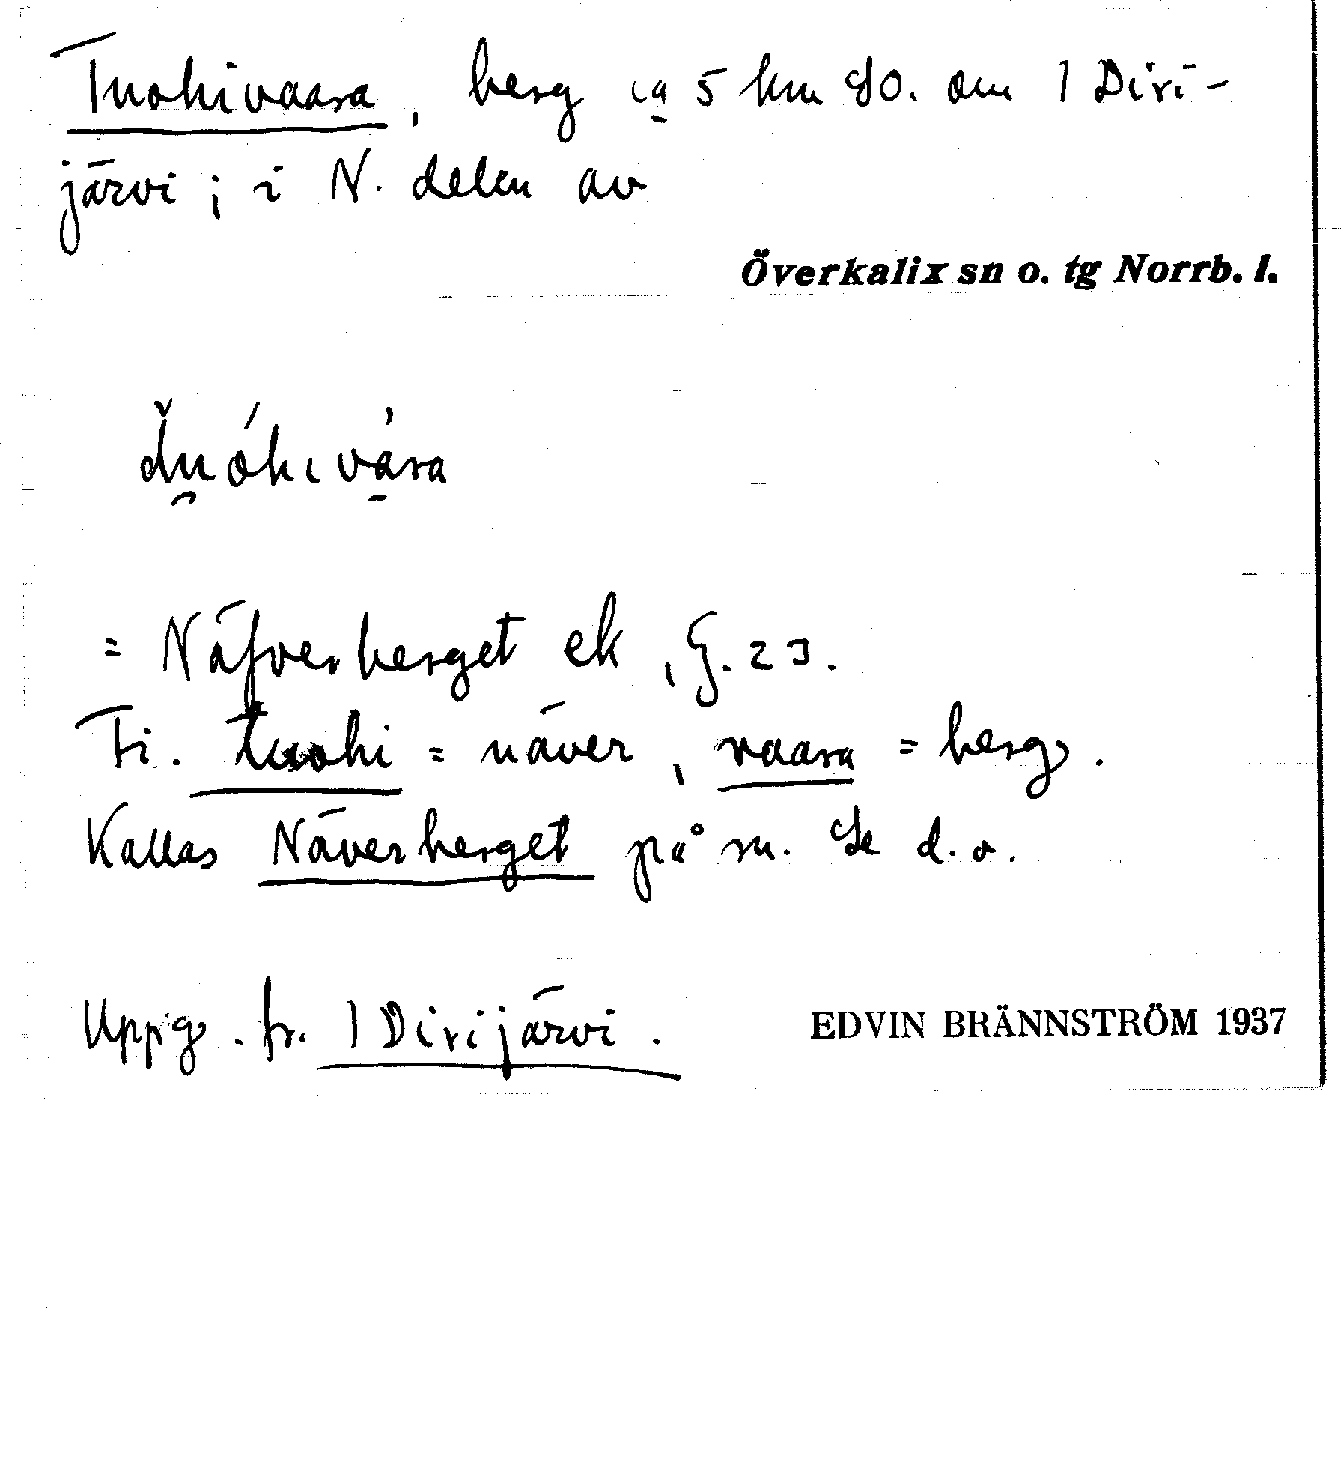 Tuohivaara, berg ca 5 km SO. om 1 Diri-
järvi; i N. delen av
Överkalix sn o. tg Norrb. l.
= Näfverberget ek, G. 23.
Fi. tuohi = näver, vaara = berg.
Kallas Näverberget på sv. Se d. o.
Uppg. fr. 1 Dirijärvi.
EDVIN BRÄNNSTRÖM 1937